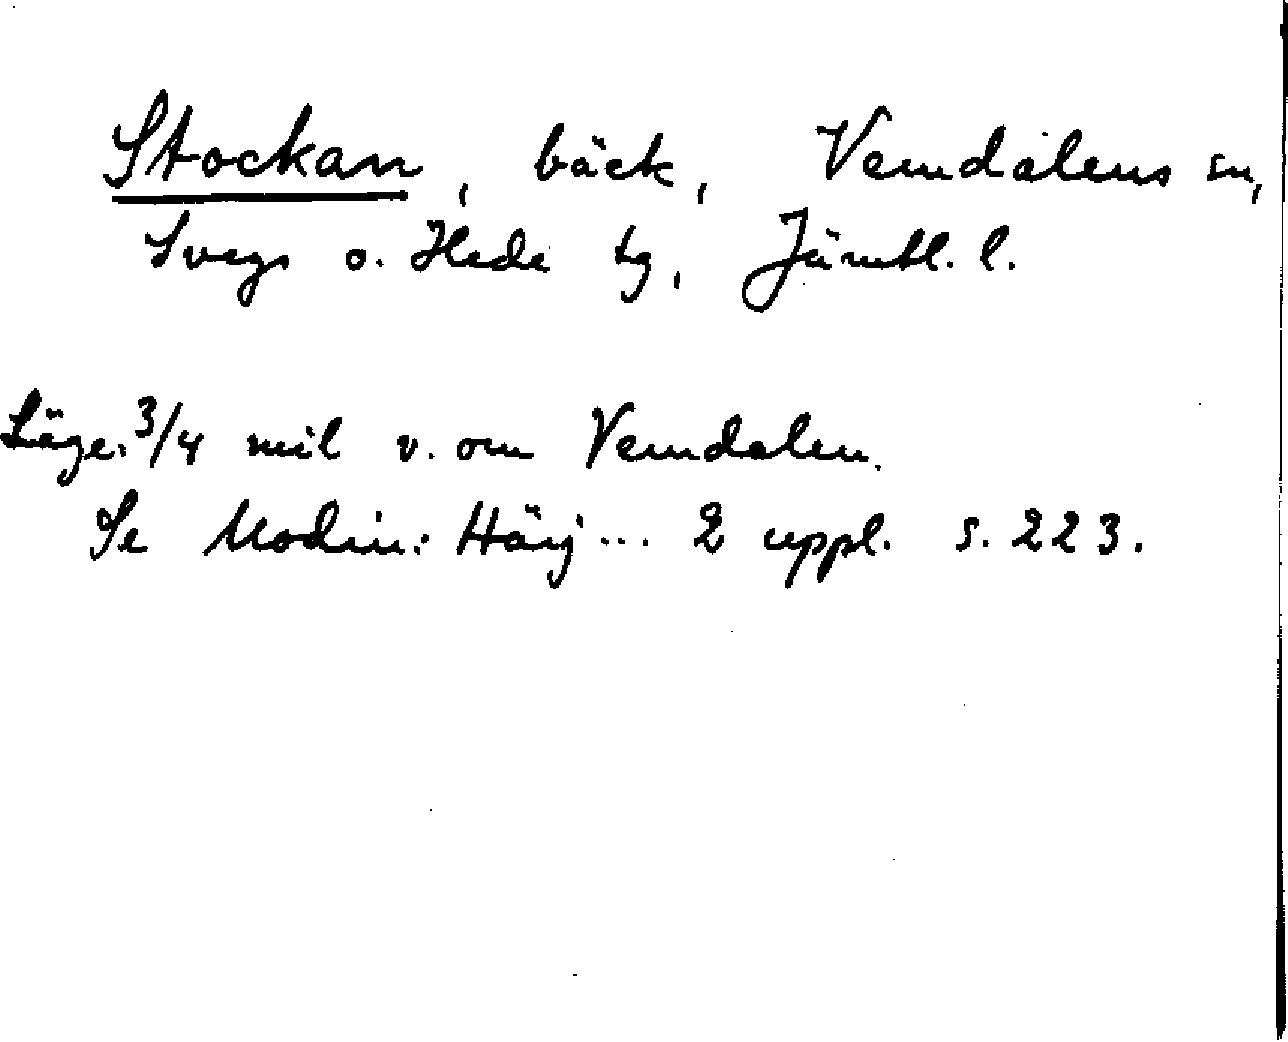 Stockan, bäck, Vemdalens sn,
Svegs o. Hede tg, Jämtl. l.
Läge: 3/4 mil v. om Vemdalen.
Se Modin: Härj... 2 uppl. s. 223.